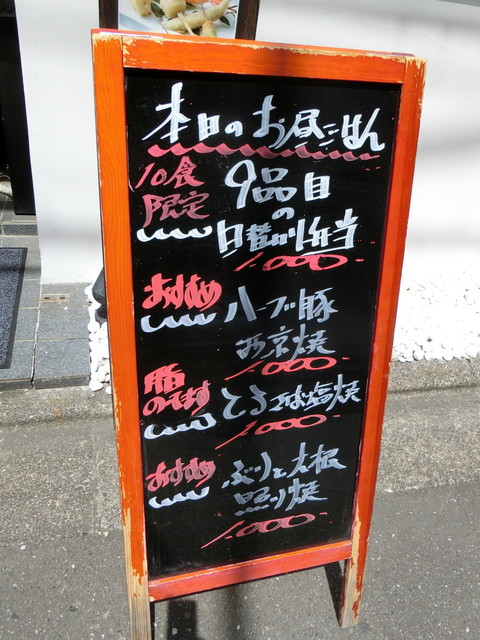 本日のお昼ごはん
10食
限定
9品目
の
日替わり弁当
1.000
おすすめ
ハーブ豚
西京焼
1.000
脂
のってます
とろさば塩焼
1.000
おすすめ
ぶりと大根
照り焼
1.000